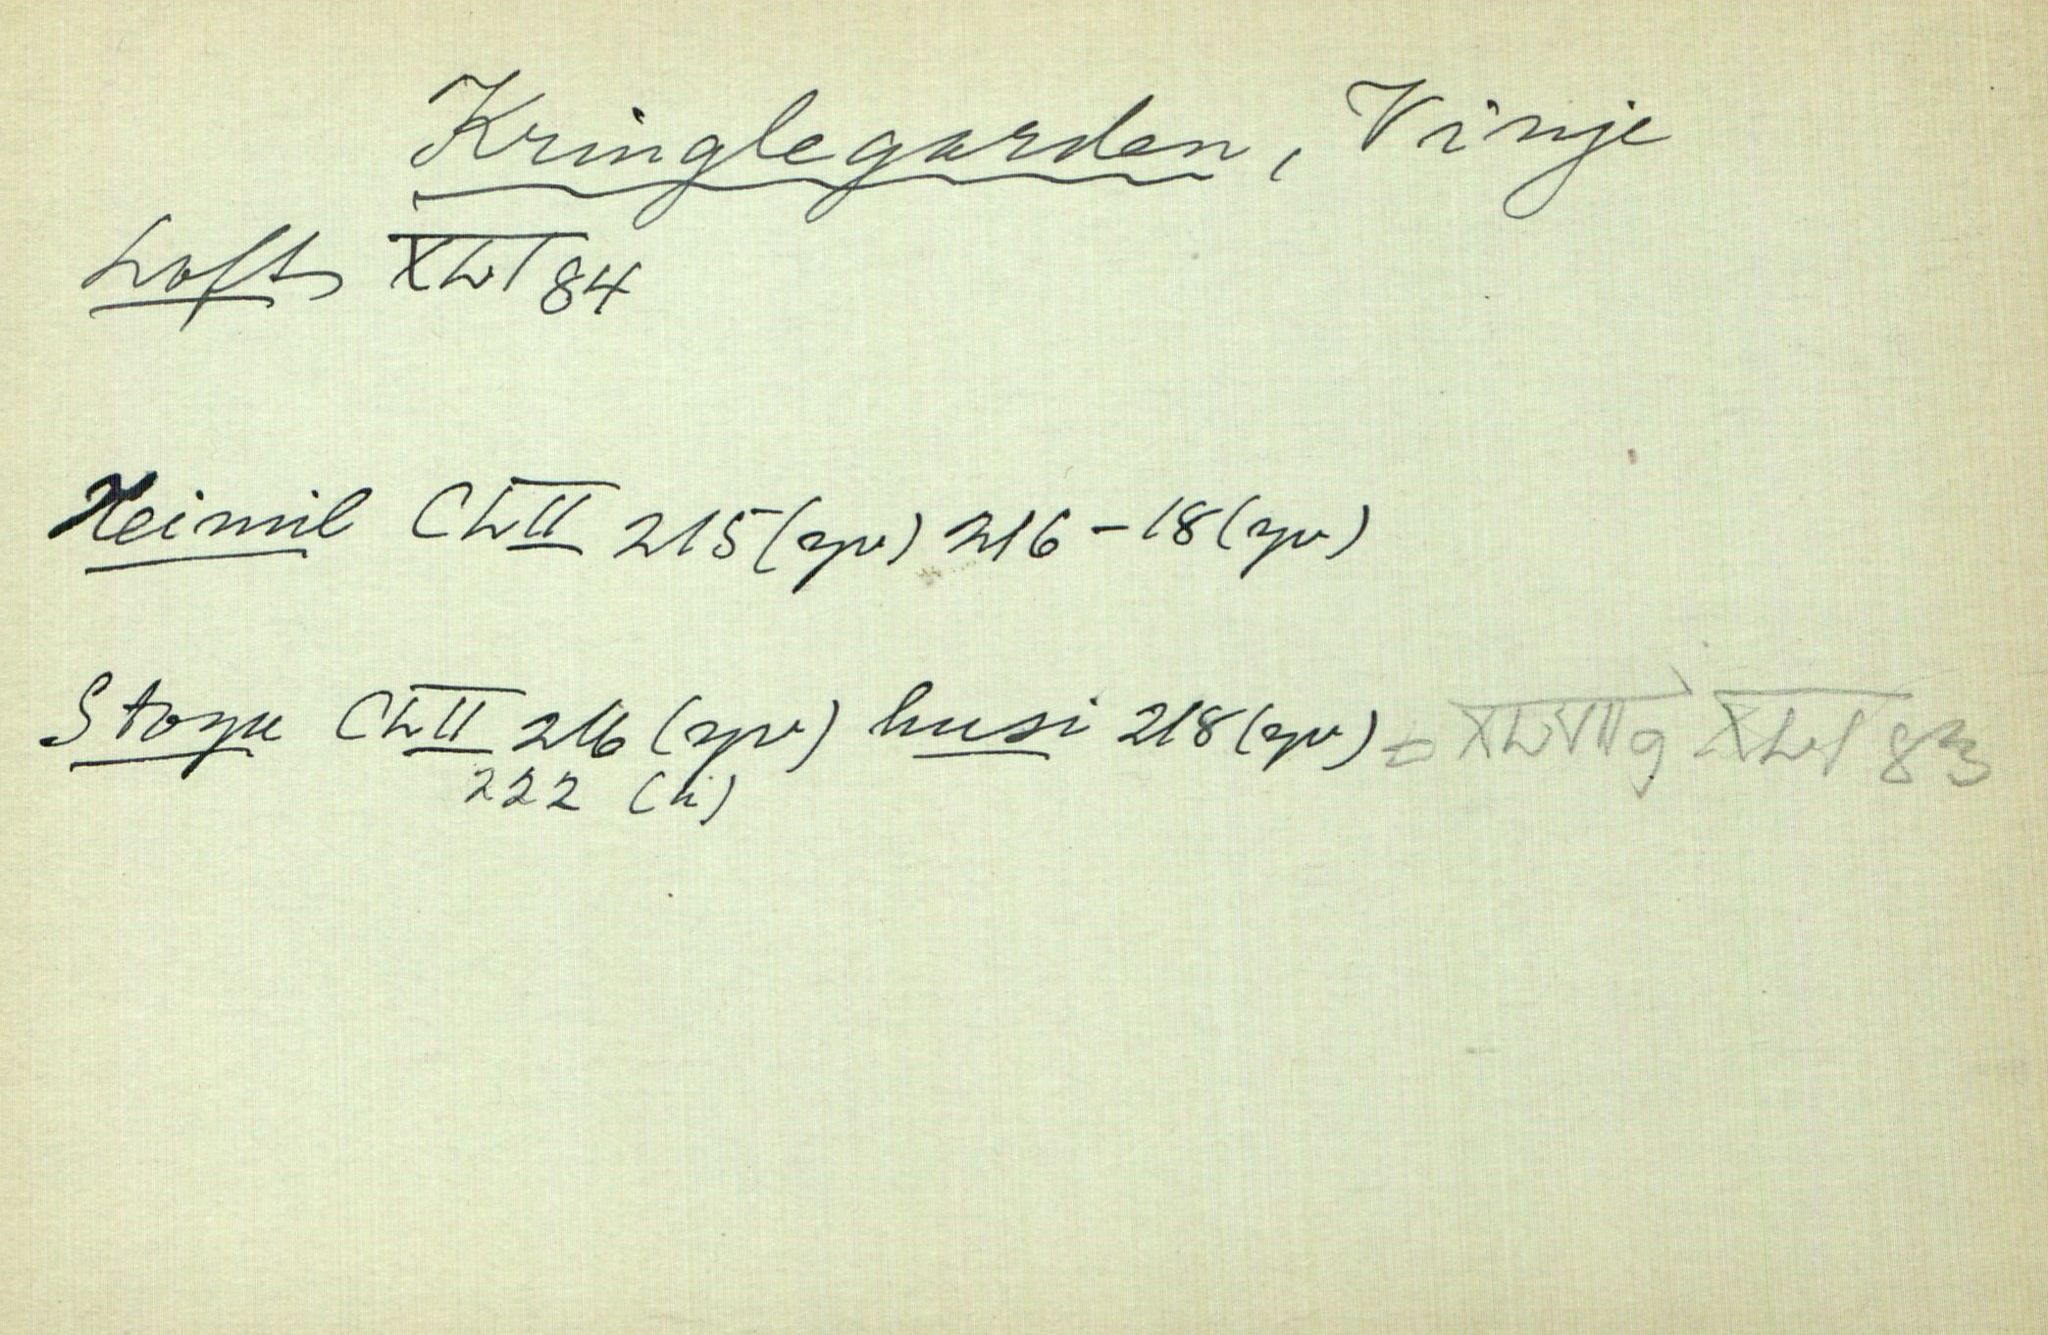 Kringlegarden, Vinje
Loft XLVI 84
Heimil CLII 215 (gv) 216-18 (gv)
Stogu CLII 216 (gv) husi 218 (gv) XLVII 9 XLVI 83
222 (h)